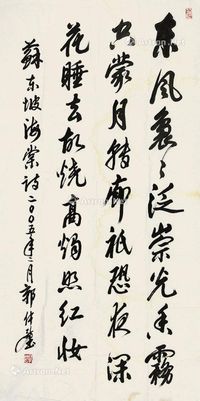 东风裊々泛崇光香霧
空蒙月转廊祇恐夜深
花睡去故烧高燭照红妆
蘇东坡海棠诗二〇〇五年二月郭仲